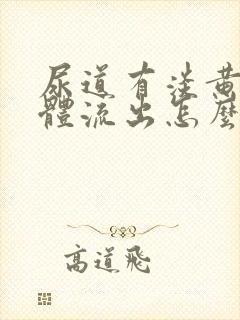 尿道有淡黃
體流出怎麼
高道飛